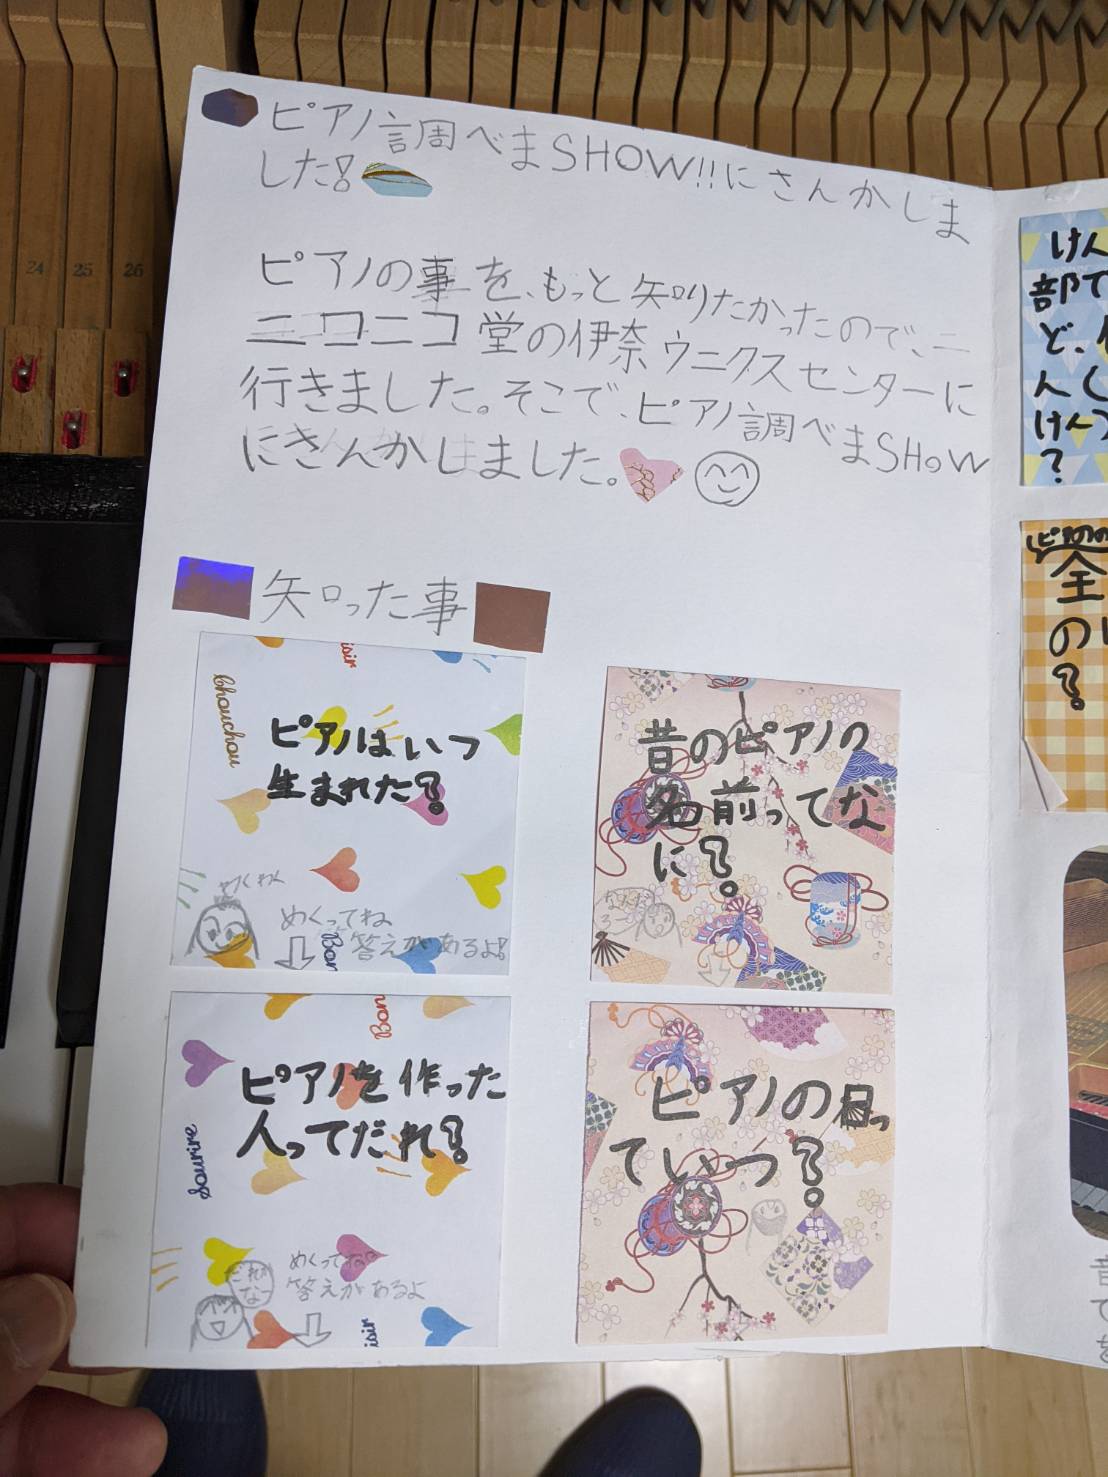 ピアノ調べまSHOW!!にさんかしま
した!
ピアノの事を、もっと知りたかったので、ニ
ニコニコ堂の伊奈ウニクスセンターに
行きました。そこで、ピアノ調べまSHOW
にさんかしました。
知った事
Chouchou
ピアノはいつ
生まれた?
めくってね
答えがあるよ!
昔のピアノの
名前ってな
に?
ピアノを作った
人ってだれ?
Sourire
だれか
な
めくってね
答えがあるよ
ピアノの日っ
ていつ?
けん
部で
ど、
ん
けん
?
全
の
?
24 25 26